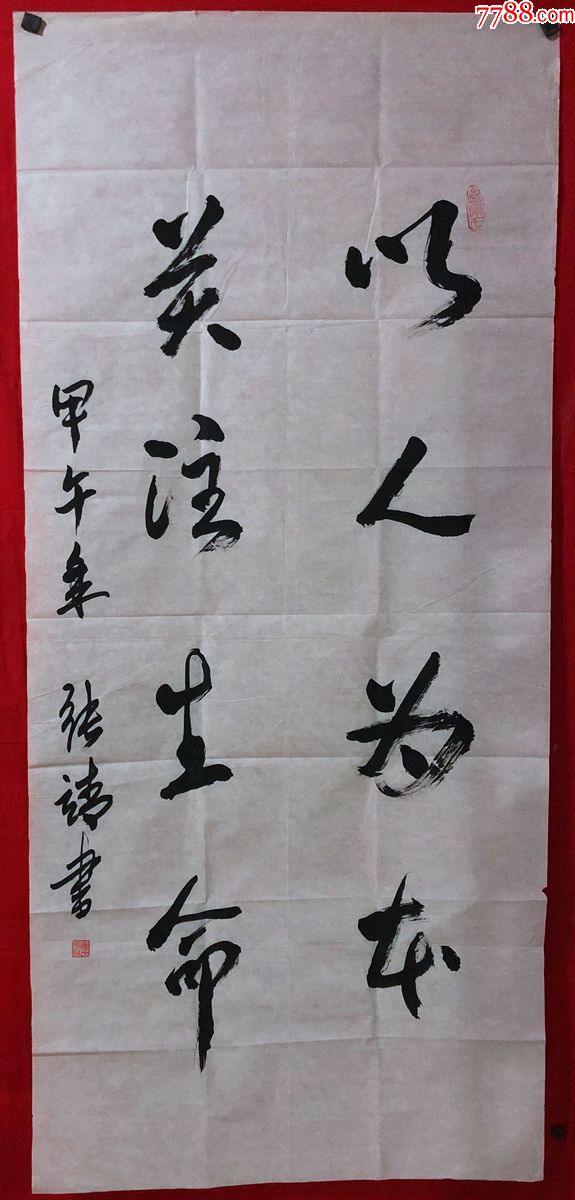 7788.com
以人为本
关注生命
甲午年 张靖書